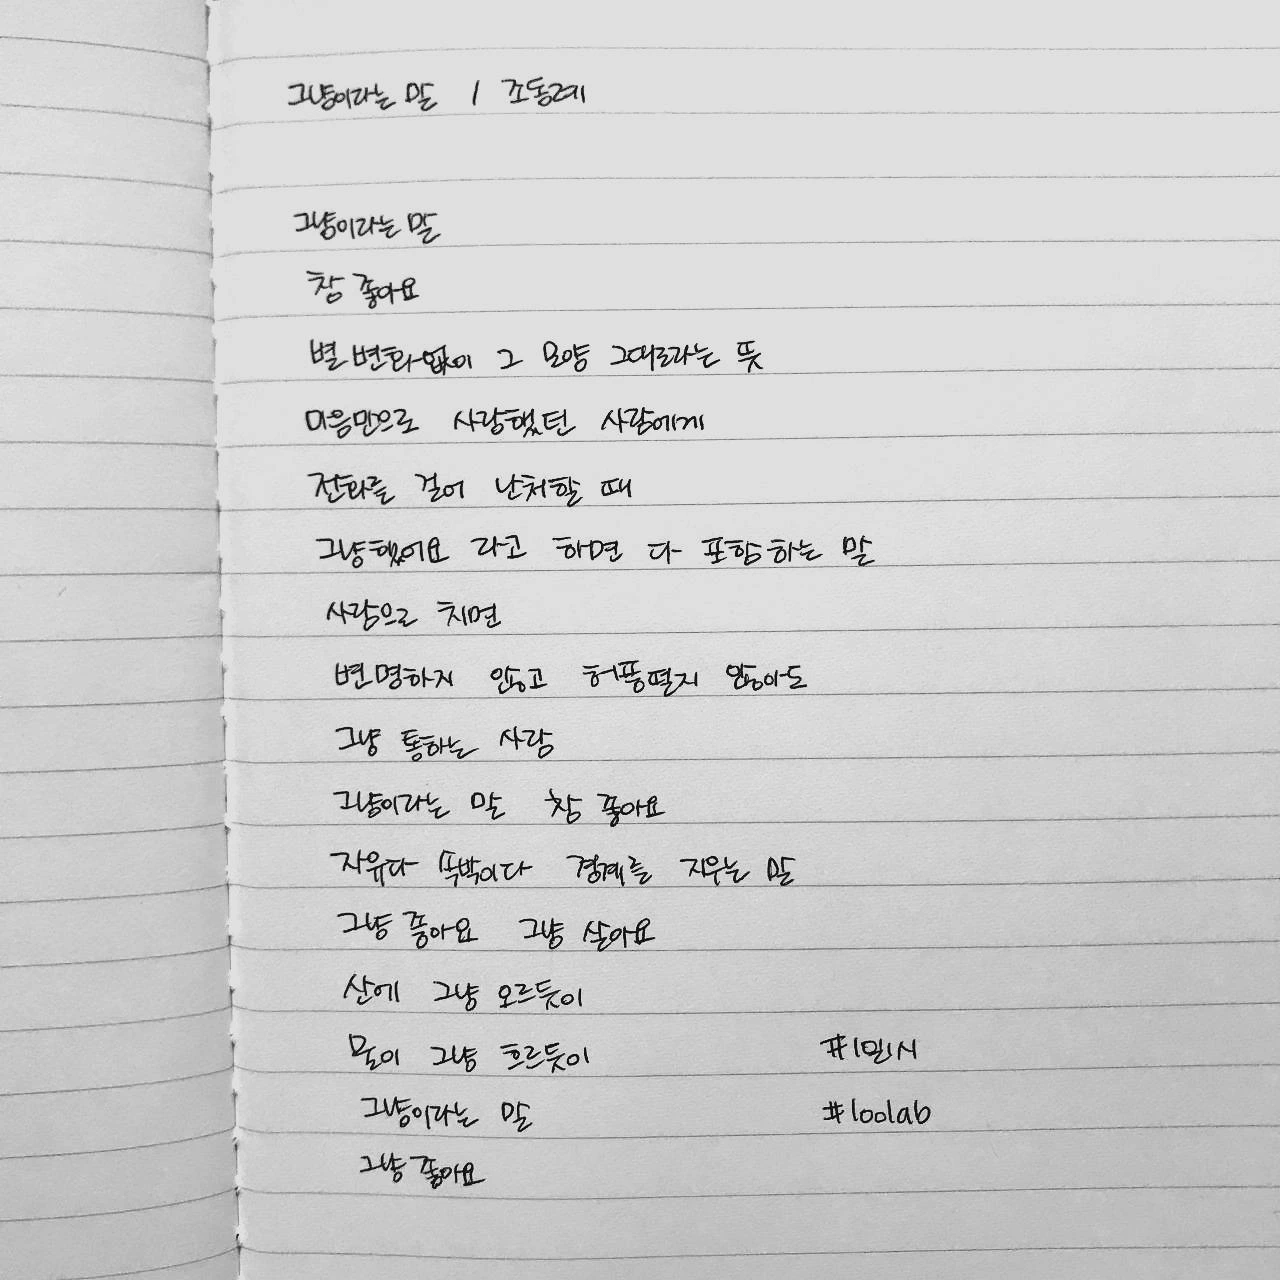 그냥이라는 말 / 조동례
그냥이라는 말
참 좋아요
별 변화없이 그 모양 그대로라는 뜻
마음만으로 사랑했던 사람에게
전화를 걸어 난처할 때
그냥했어요 라고 하면 다 포함하는 말
사람으로 치면
변명하지 않고 허풍떨지 않아도
그냥 통하는 사람
그냥이라는 말 참 좋아요
자유다 속박이다 경계를 지우는 말
그냥 좋아요 그냥 살아요
산에 그냥 오르듯이
물이 그냥 흐르듯이 #1일1시
그냥이라는 말 #100lab
그냥 좋아요